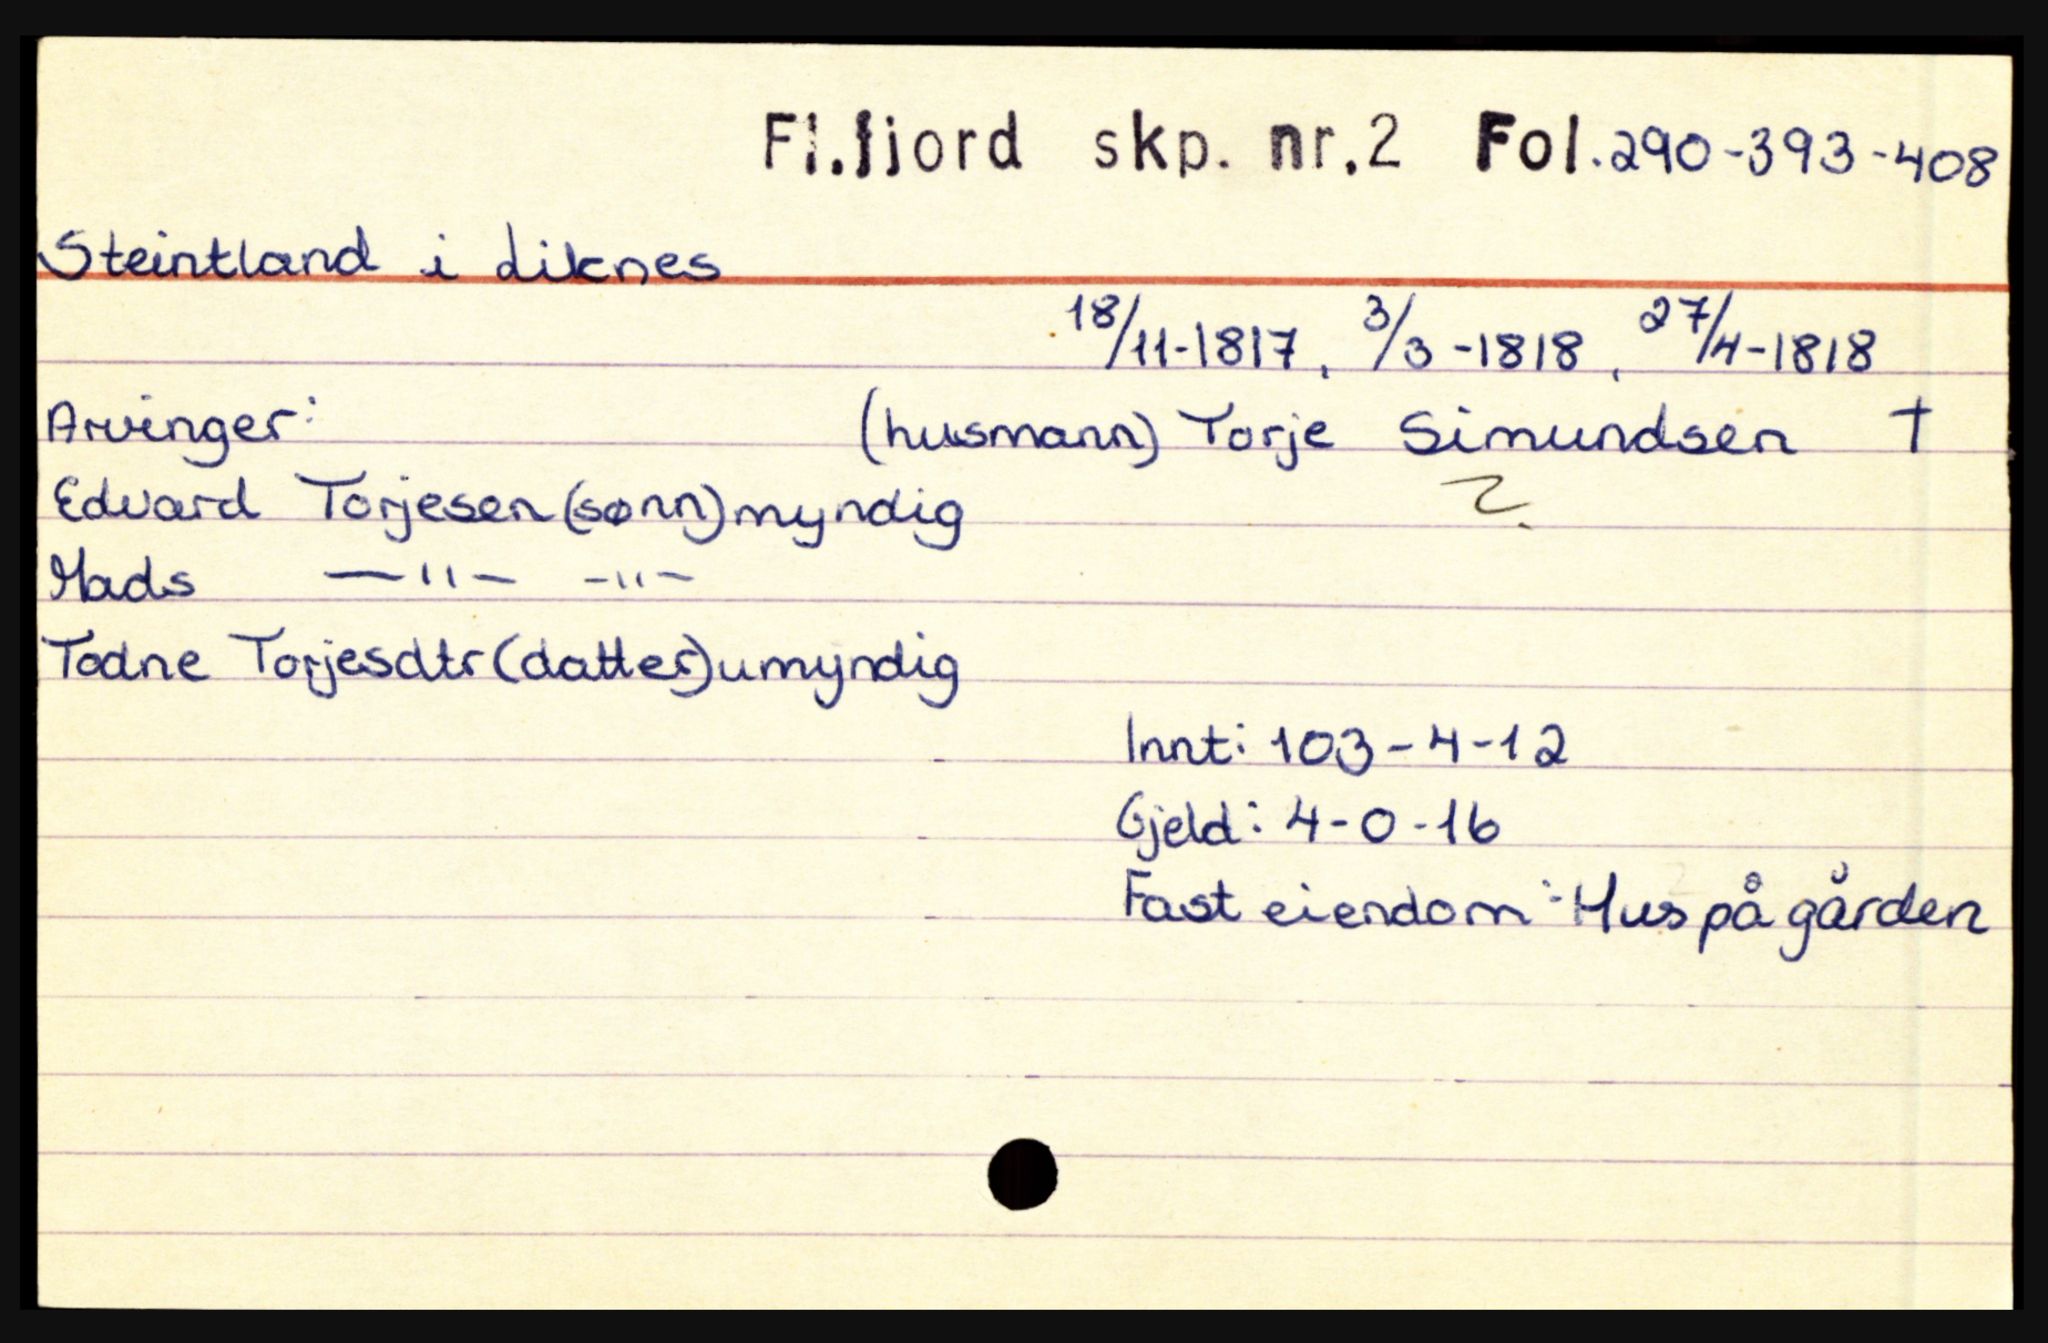 Fl.fjord skp. nr.2 Fol.290-393-408
Steintland i Liknes
18/11-1817, 3/3-1818, 27/4-1818
Arvinger: (husmann) Torje Simundsen †
Edvard Torjesen (sønn) myndig ?
Mads —"— -"-
Todne Torjesdtr (datter) umyndig
Innt: 103-4-12
Gjeld: 4-0-16
Fast eiendom: Hus på gården